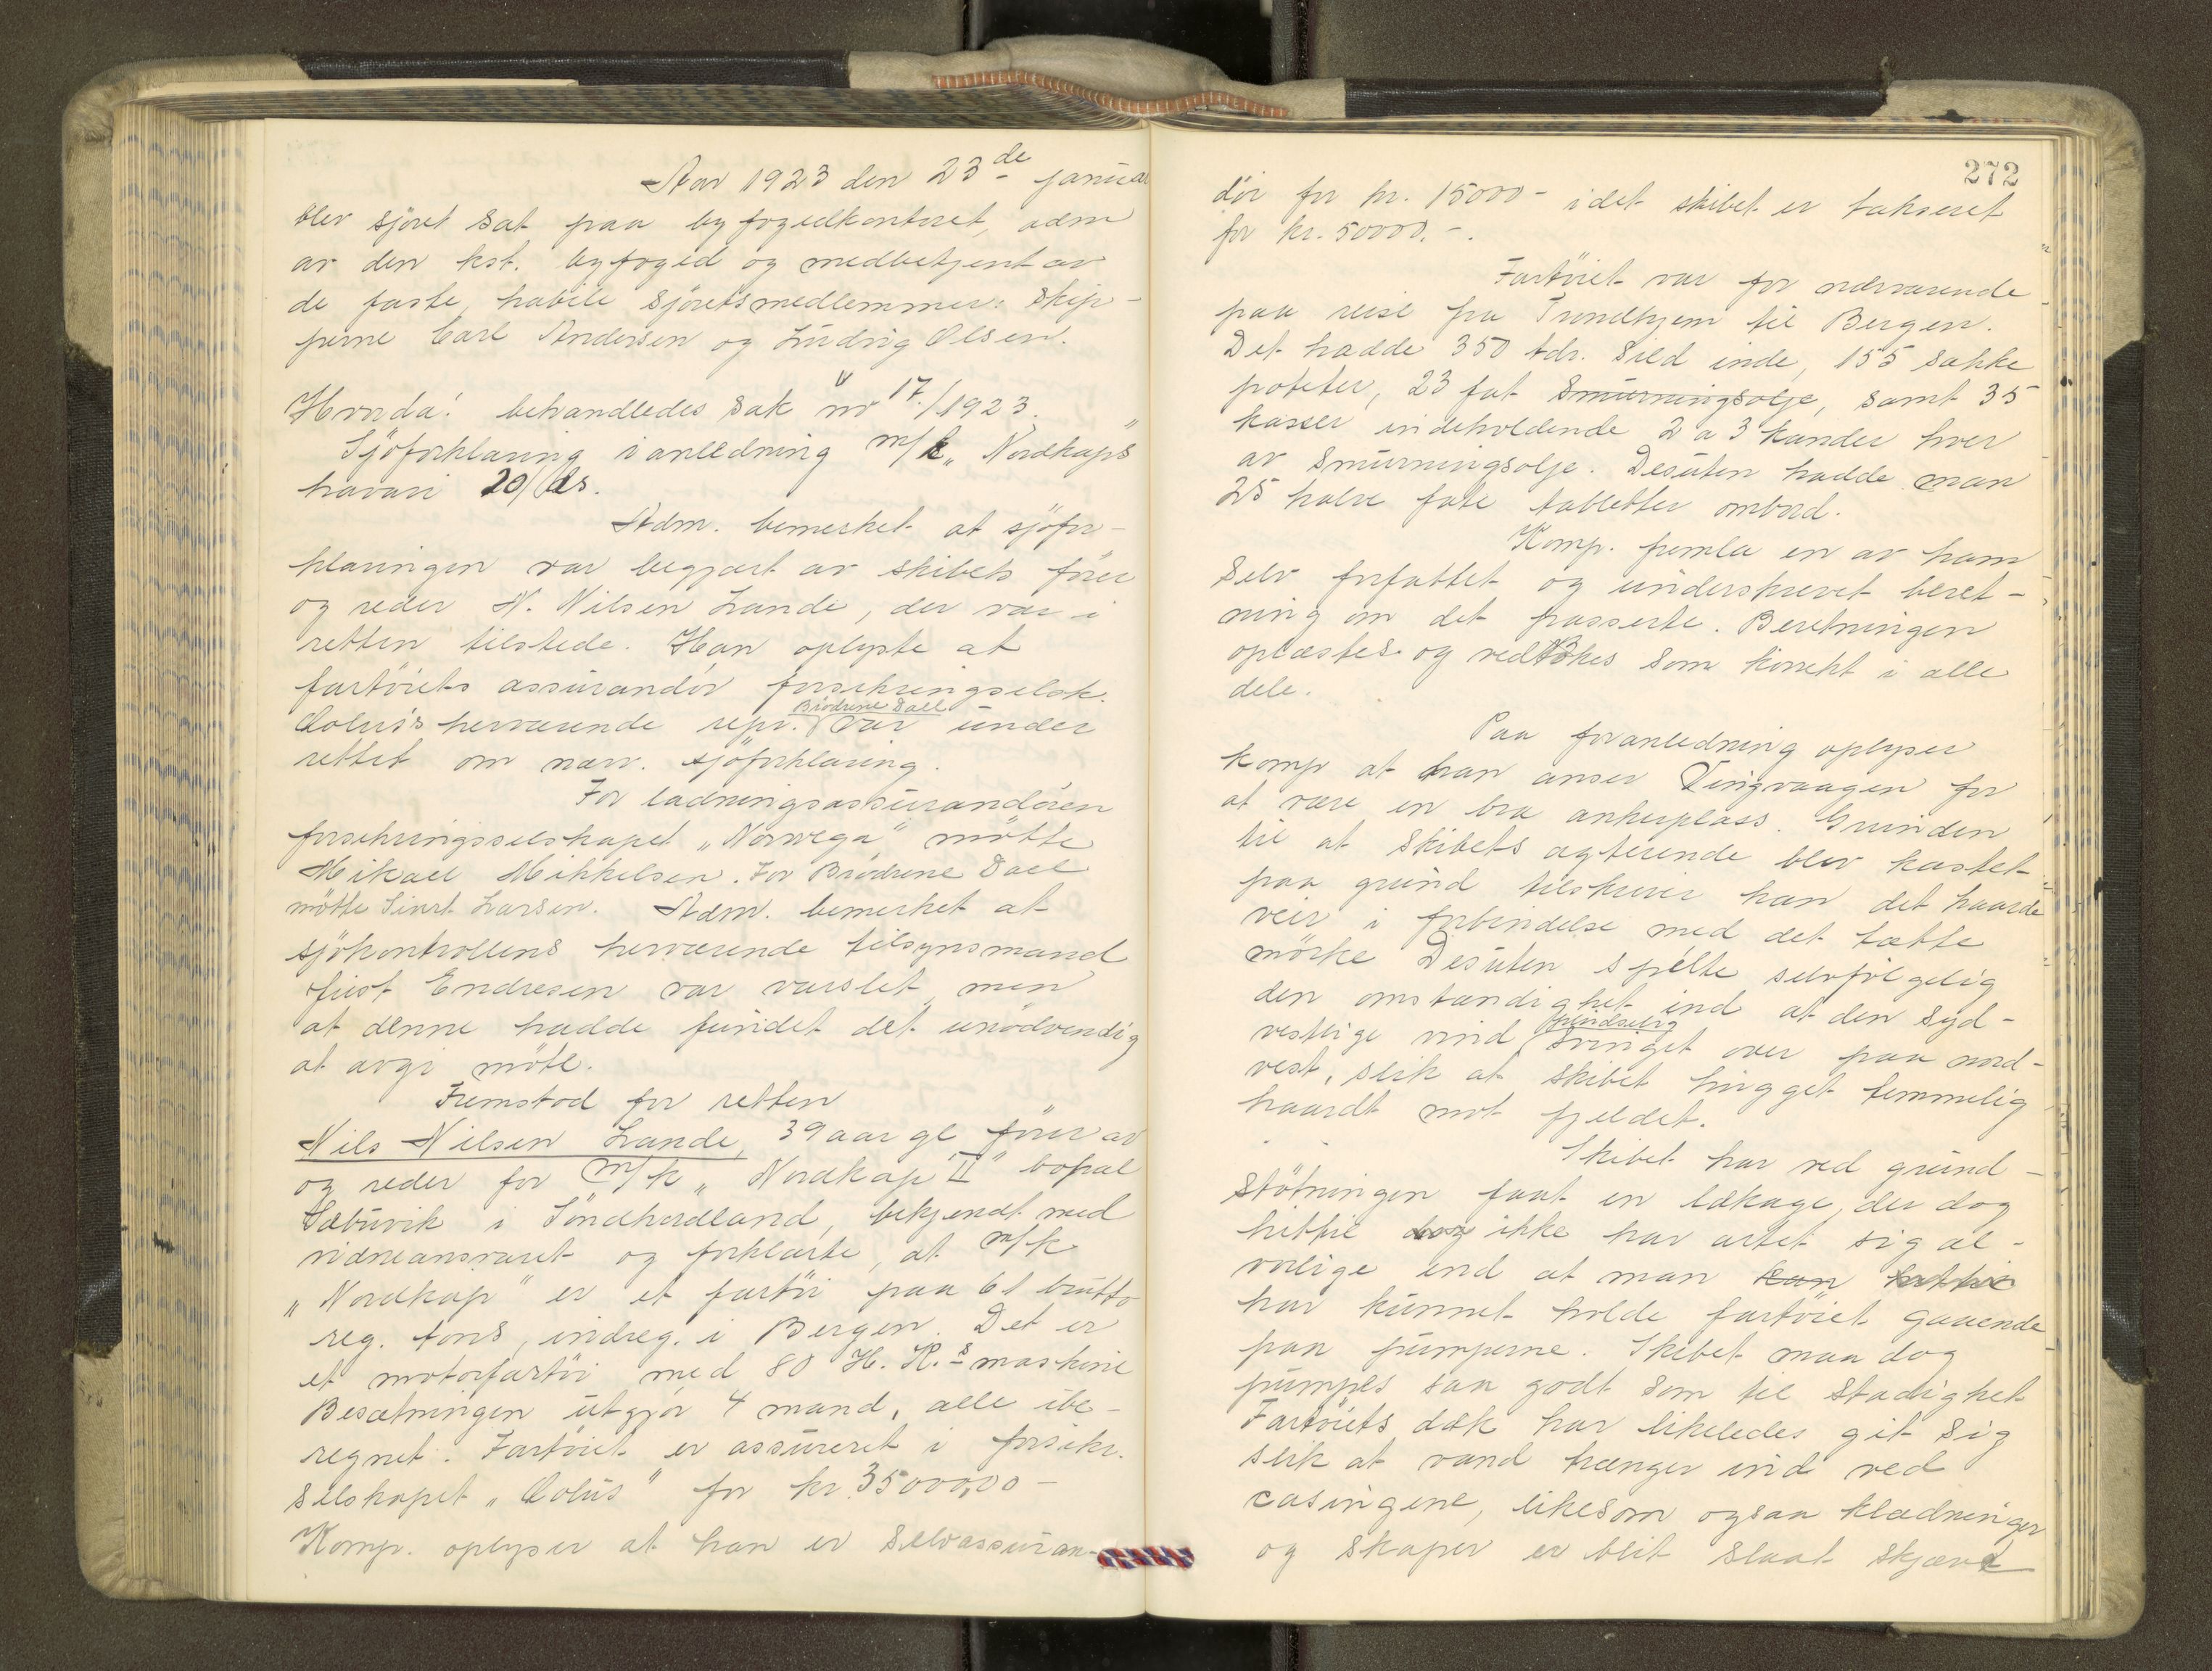 Aar 1923 den 23de januar
blev sjöret sat paa byfogedkontoret, adm
av den kst. byfoged og medbetjent av
de faste, habile sjöretsmedlemmer: Skip-
perne Carl Andersen og Ludvig Olsen.
Hvorda: behandledes sak nr 17/1923.
Sjöforklaring i anledning m/k „Nordkaps"
havari 20/ ds.
Adm. bemerket at sjöfor-
klaringen var begjært av skibets förer
og reder N. Nilsen Lande, der var i
retten tilstede. Han oplyste at
fartöiets assurandör forsikringselsk.
Æolus's herværende repr. Brödrene Dael var under
rettet om nærv. sjöforklaring.
For ladningsassurandören
forsikringsselskapet „Norvega" mötte
Mikael Mikkelsen. For Brödrene Dael
mötte Sivert Larsen. Adm. bemerket at
sjökontrollens herværende tilsynsmand
Endresen var varslet, men
at denne hadde fundet det unödvendig
at avgi möte.
Fremstod for retten
Nils Nilsen Lande, 39 aar gl förer av
og reder for m/k „Nordkap II" bopæl
Sæbuvik i Söndhordland, bekjendt med
vidneansvaret og forklarte, at m/k
„Nordkap" er et fartöi paa 61 brutto
reg. tons, indreg. i Bergen. Det er
et motorfartöi med 80 H. K.s maskine
Besætningen utgjör 4 mand, alle ibe-
regnet. Fartöiet er assureret i forsikr.
selskapet „Æolus" for kr 35000,00-
Komp. oplyser at han er selvassuran-
272
dör for kr. 15000- idet skibet er takseret
for kr. 50000.-.
Fartöiet var for nærværende
paa reise fra Trondhjem til Bergen.
Det hadde 350 tdr. sild inde, 155 sække
poteter, 23 fat smurningsolje, samt 35
kasser indeholdende 2 a 3 kander hver
av smurningsolje. Desuten hadde man
25 halve fate tabletter ombord.
Komp. fremla en av ham
selv forfattet og underskrevet beret-
ning om det passerte. Beretningen
oplæstes og vedtokes som korrekt i alle
dele.
Paa foranledning oplyser
komp at han anser Tingvaagen for
at være en bra ankerplass. Grunden
til at skibets agterende blev kastet
paa grund tilskriver han det haarde
veir i forbindelse med det tætte
mörke Desuten spilte selvfölgelig
den omstændighet ind at den syd-
vestlige vind pludselig svinget over paa nord-
vest, slik at skibet hugget temmelig
haardt mot fjeldet.
Skibet har ved grund-
stötningen faat en lækage, der dog
hittil dog ikke har artet sig al-
vorlige end at man kan hittil
har kunnet holde fartöiet gaaende
paa pumperne. Skibet maa dog
pumpes saa godt som til stadighet
Fartöiets dæk har likeledes git sig
slik at vand trænger ind ved
casingene, likesom ogsaa klædninger
og skaper er blit slaat skjæve